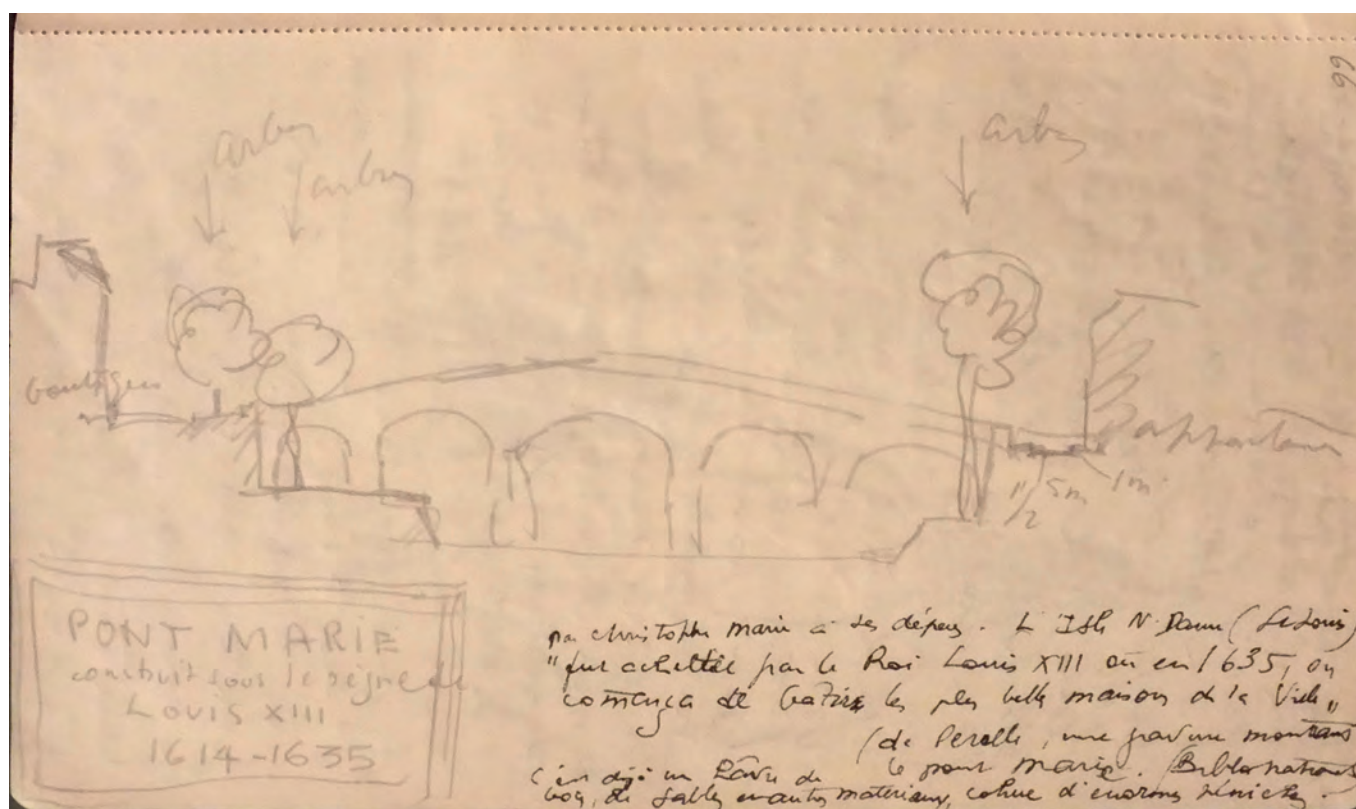 66
arbres
arbres
arbres
boutiques
appartements
1/2 5m 1m
PONT MARIE
construit sous le règne de
LOUIS XIII
1614-1635
par christophe marie à ses dépens. L'Isle N. Dame (St Louis)
"fut achettée par le Roi Louis XIII où en 1635, on
comença de batire les plus belle maison de la Ville"
(de Perelle, une gravure montrant
le pont marie. (Biblio nationale
C'est déjà un Hâvre de
bois, de sables et autres matériaux, cohue d'énormes péniches.